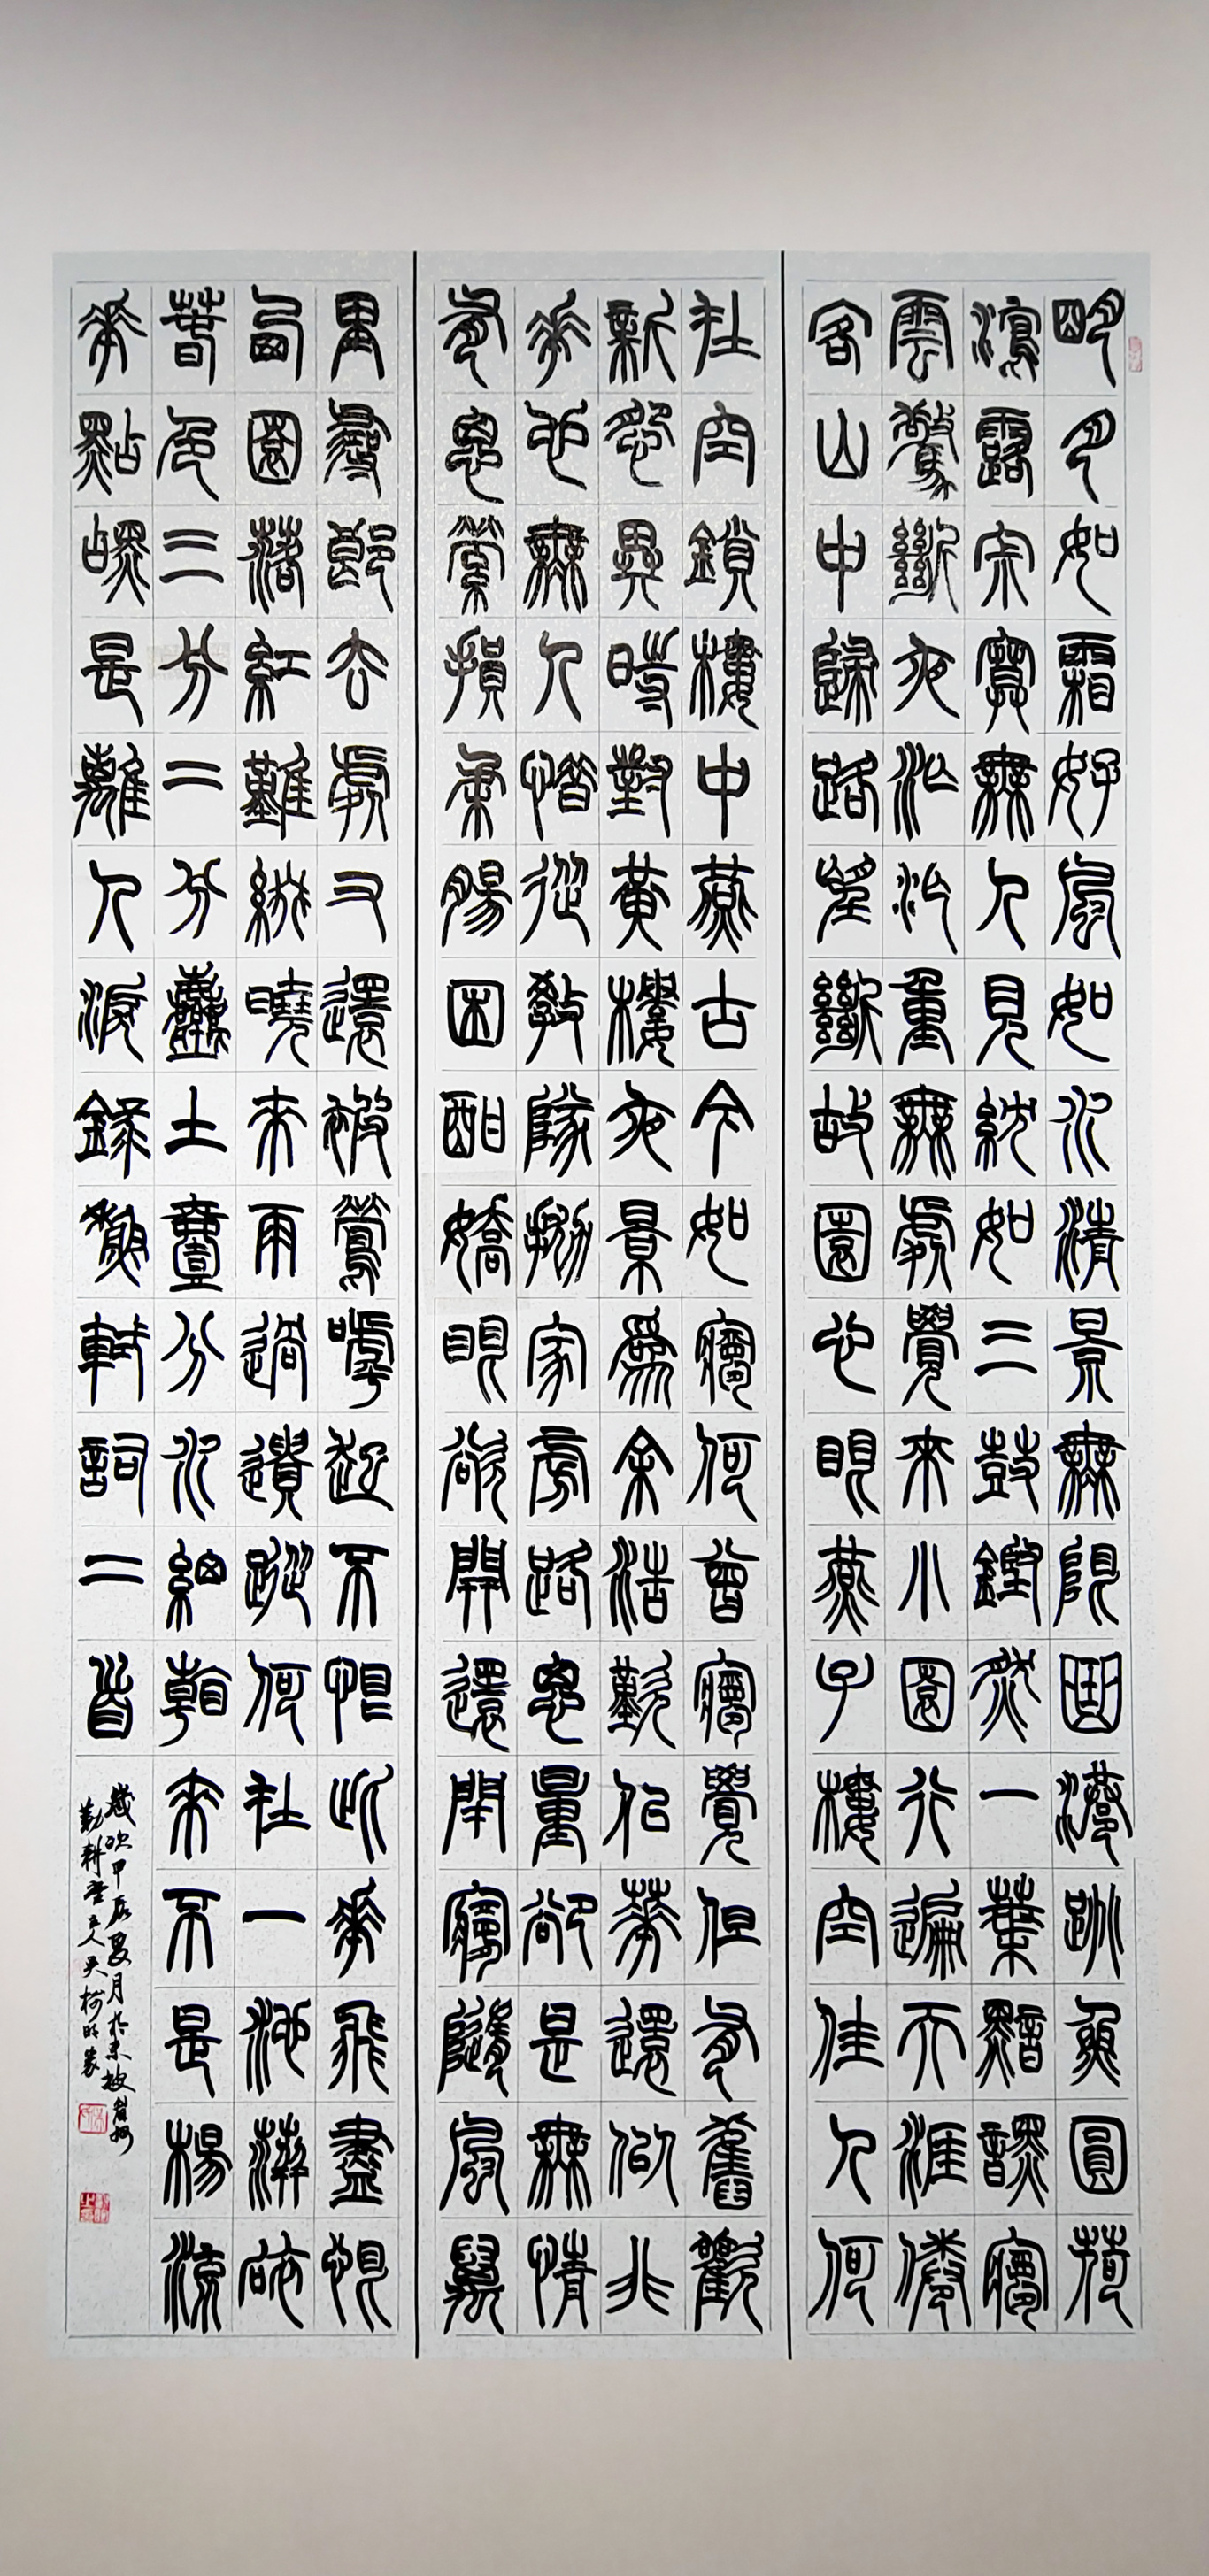 明月如霜好風如水清景無限曲港跳魚圓荷
瀉露寂寞無人見紞如三鼓鏗然一葉黯黯夢
雲驚斷夜茫茫重無處覺來小園行遍天涯倦
客山中歸路望斷故園心眼燕子樓空佳人何
在空鎖樓中燕古今如夢何曾夢覺但有舊歡
新怨異時對黃樓夜景為余浩歎似花還似非
花也無人惜從教墜拋家傍路思量卻是無情
有思縈損柔腸困酣嬌眼欲開還閉夢隨風萬
里尋郎去處又還被鶯呼起不恨此花飛盡恨
西園落紅難綴曉來雨過遺蹤何在一池萍碎
春色三分二分塵土壹分水細看來不是楊流
花點點是離人淚錄蘇軾詞二首
歲次甲辰夏月於東坡黃州
勤耕堂主人吳明篆